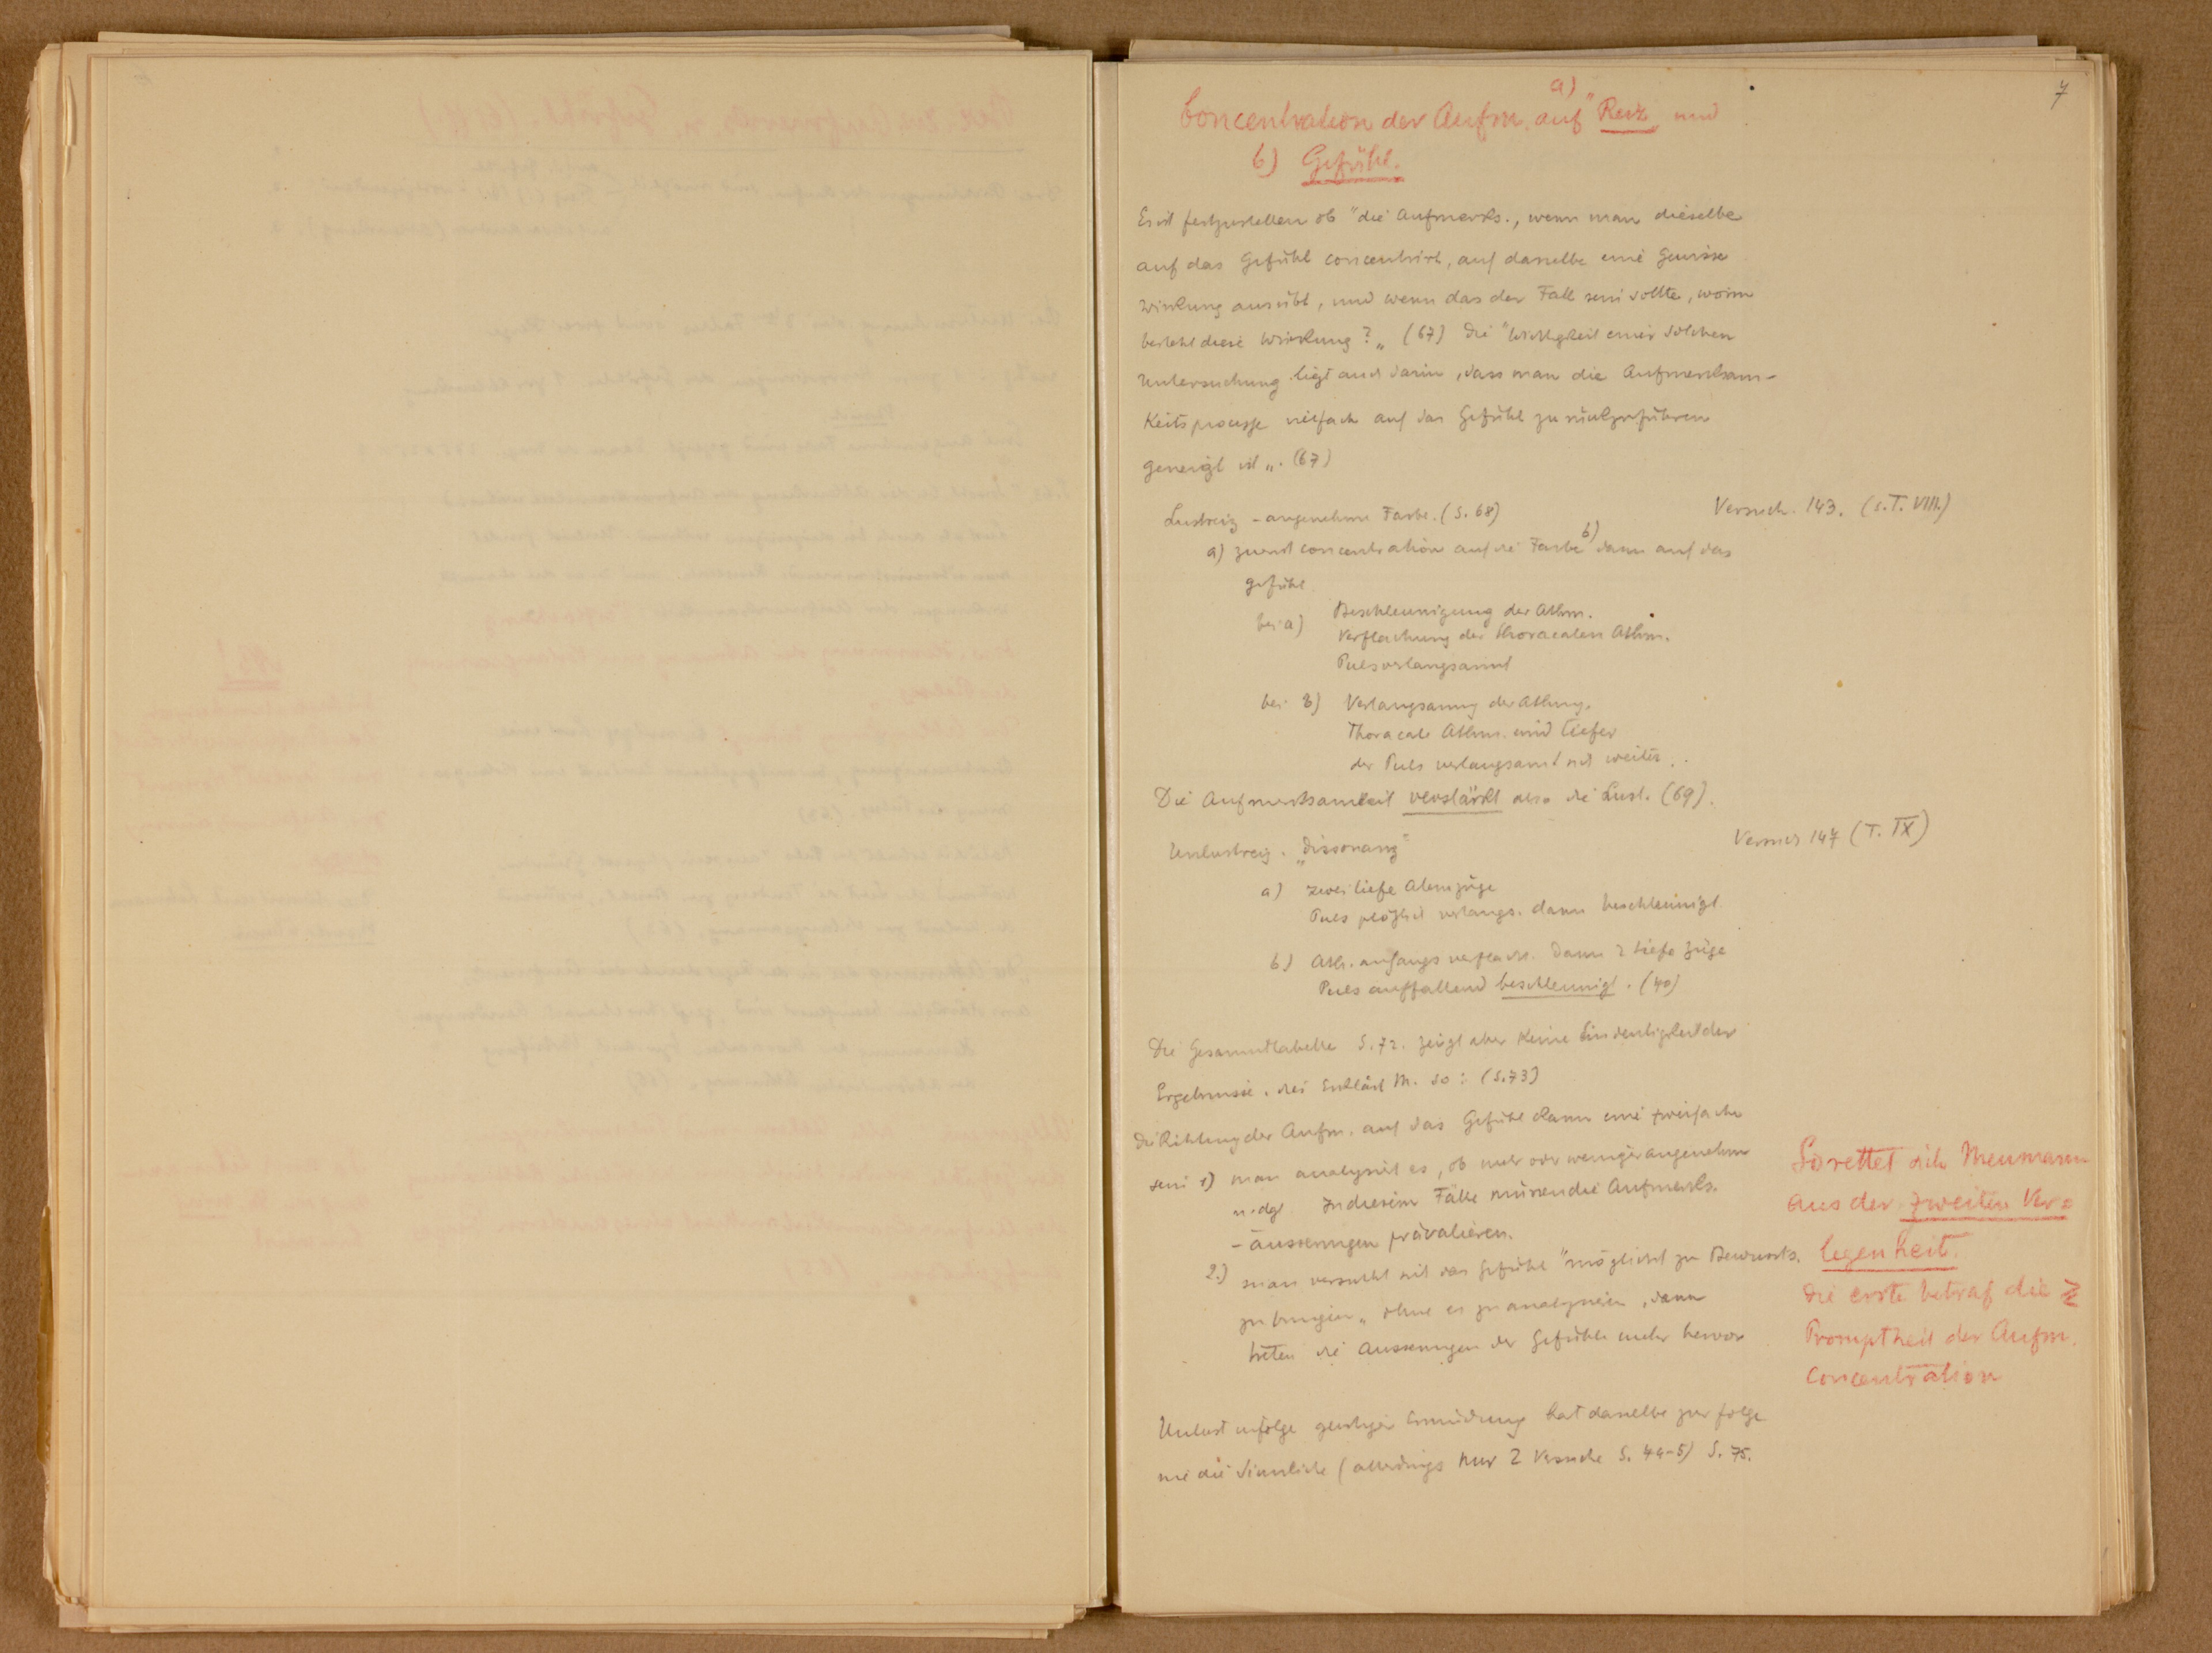 7
Concentration der Aufm. auf a) "Reiz" und
b) Gefühl.
Es ist festzustellen ob "die Aufmerks., wenn man dieselbe
auf das Gefühl concentrirt, auf dasselbe eine gewisse
Wirkung ausübt, und wenn das der Fall sein sollte, worin
besteht diese Wirkung?" (67) Die "Wichtigkeit einer solchen
Untersuchung ligt auch darin, dass man die Aufmerksam-
keitsprocesse vielfach auf das Gefühl zurückzuführen
geneigt ist". (67)
Lustreiz - angenehme Farbe. (S. 68)
Versuch. 143. (s. T. VIII.)
a) zuerst concentration auf die Farbe b) dann auf das
gefühl
bei a) Beschleunigung der Athm.
Verflachung der thoracalen Athm.
Puls verlangsamt
bei b) Verlangsamung der Athmg.
Thoracale Athm. wird tiefer
der Puls verlangsamt sich weiter.
Die Aufmerksamkeit verstärkt also die Lust. (69).
Unlustreiz. "Dissonanz"
Versuch 147 (T. IX)
a) zwei tiefe Atemzüge
Puls plözlich verlangs. dann beschleunigt
b) Ath. anfangs verflacht. Dann 2 tiefe Züge
Puls auffallend beschleunigt. (70)
Die Gesammttabelle S. 72. zeigt aber keine Eindeutigkeit der
Ergebnisse. dies Erklärt M. so: (S. 73)
Die Richtung der Aufm. auf das Gefühl kann eine zweifache
sein 1) man analysirt es, ob mehr oder weniger angenehm
u. dgl. In diesem Falle müssen die Aufmerks.
- äusserungen prävalieren.
2.) man versucht sich das Gefühl "möglichst zu Bewussts.
zu bringen" ohne es zu analysiren, dann
treten die Äusserungen der Gefühle mehr hervor
So rettet sich Meumann
aus der zweiten Ver=
legenheit.
Die erste betraf die
Promptheit der Aufm.
Concentration
Unlust infolge geistiger Ermüdung hat dasselbe zur folge
wie die Sinnliche (allerdings nur 2 Versuche S. 74-5) S. 75.